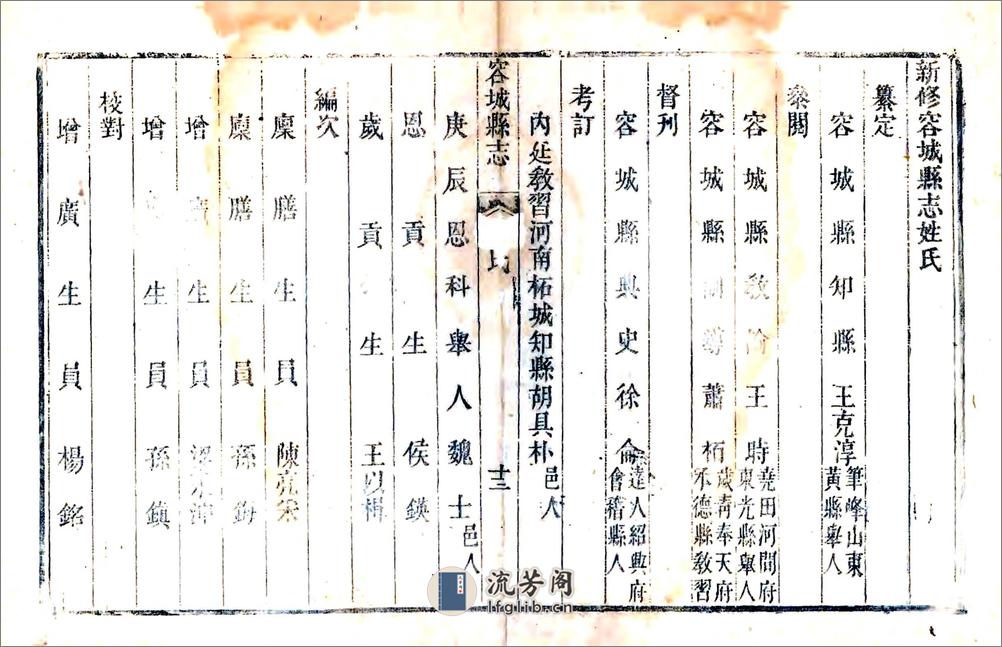 新修容城縣志姓氏
纂定
容城縣知縣王克淳筆峰山東黃縣舉人
叅閱
容城縣教諭王時堯田河間府東光縣舉人
容城縣訓導蕭栢歲青奉天府承德縣教習
督刊
容城縣典史徐侖達人紹興府會稽縣人
考訂
內廷教習河南柘城知縣胡具朴邑人
容城縣志
十三
庚辰恩科舉人魏士邑人
恩貢生侯鍈
歲貢生王以楫
編次
廩膳生員陳亮采
廩膳生員孫
增生員
增生員孫鎮
校對
增廣生員楊銘
流芳阁
lfglib.cn